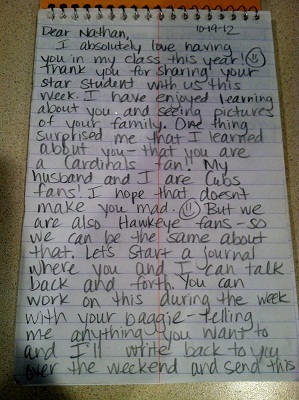 Dear Nathan, 10-19-12
I absolutely love having
you in my class this year! ☺
Thank you for sharing your
star student with us this
week. I have enjoyed learning
about you and seeing pictures
of your family. One thing
surprised me that I learned
about you - that you are
a Cardinals fan! My
husband and I are Cubs
fans! I hope that doesnt
make you mad. ☺ But we
are also Hawkeye fans - so
we can be the same about
that. Let's start a journal
where you and I can talk
back and forth. You can
work on this during the week
with your baggie - telling
me anything you want to
and I'll write back to you
over the weekend and send this